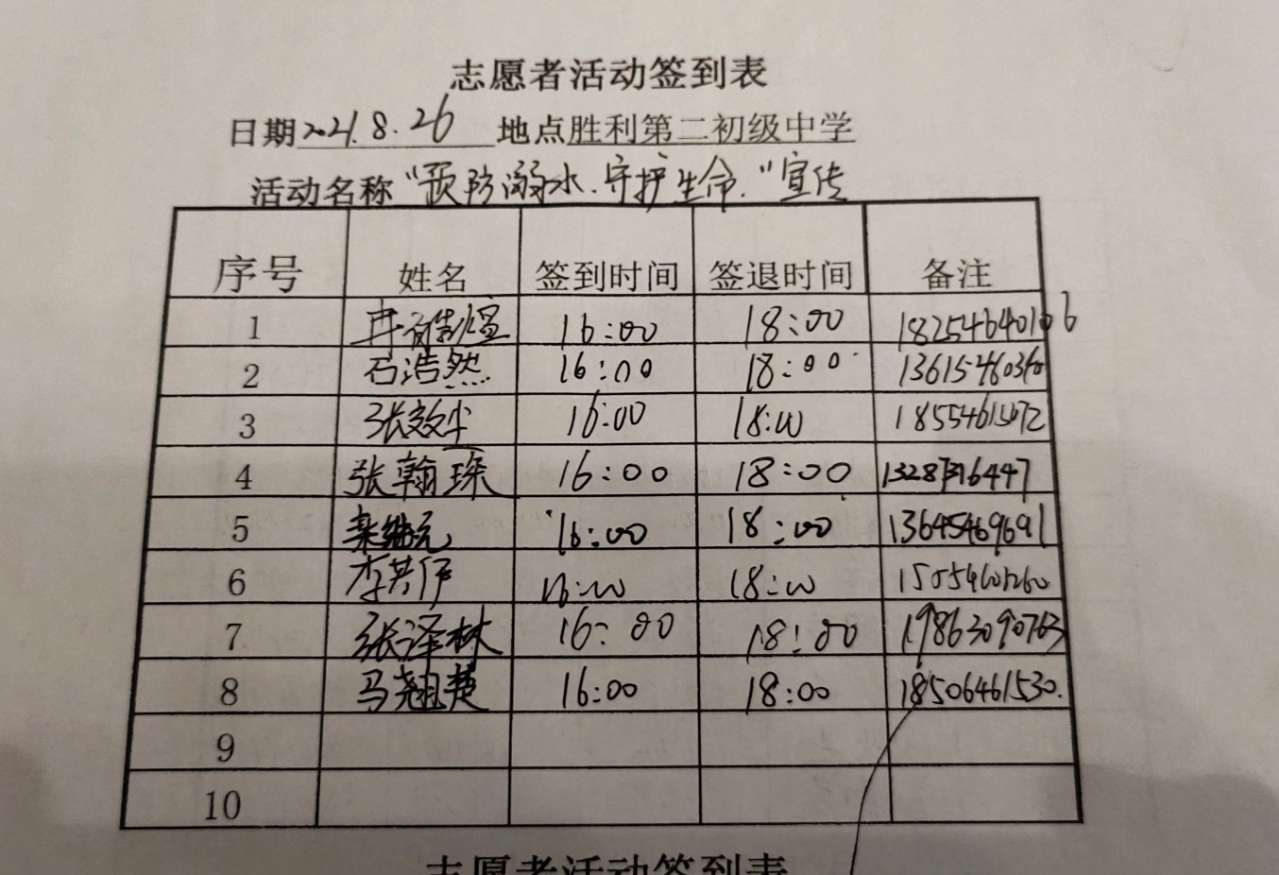 志愿者活动签到表
日期2021.8.26 地点胜利第二初级中学
活动名称“预防溺水.守护生命.”宣传
序号 姓名 签到时间 签退时间 备注
1 16:00 18:00
2 石浩然 16:00 18:00
3 16:00 18:00
4 张翰琛 16:00 18:00
5 16:00 18:00 13645469691
6 16:00 18:00
7 张泽林 16:00 18:00 19863090763
8 马翘楚 16:00 18:00 18506461530.
9
10
志愿者活动签到表